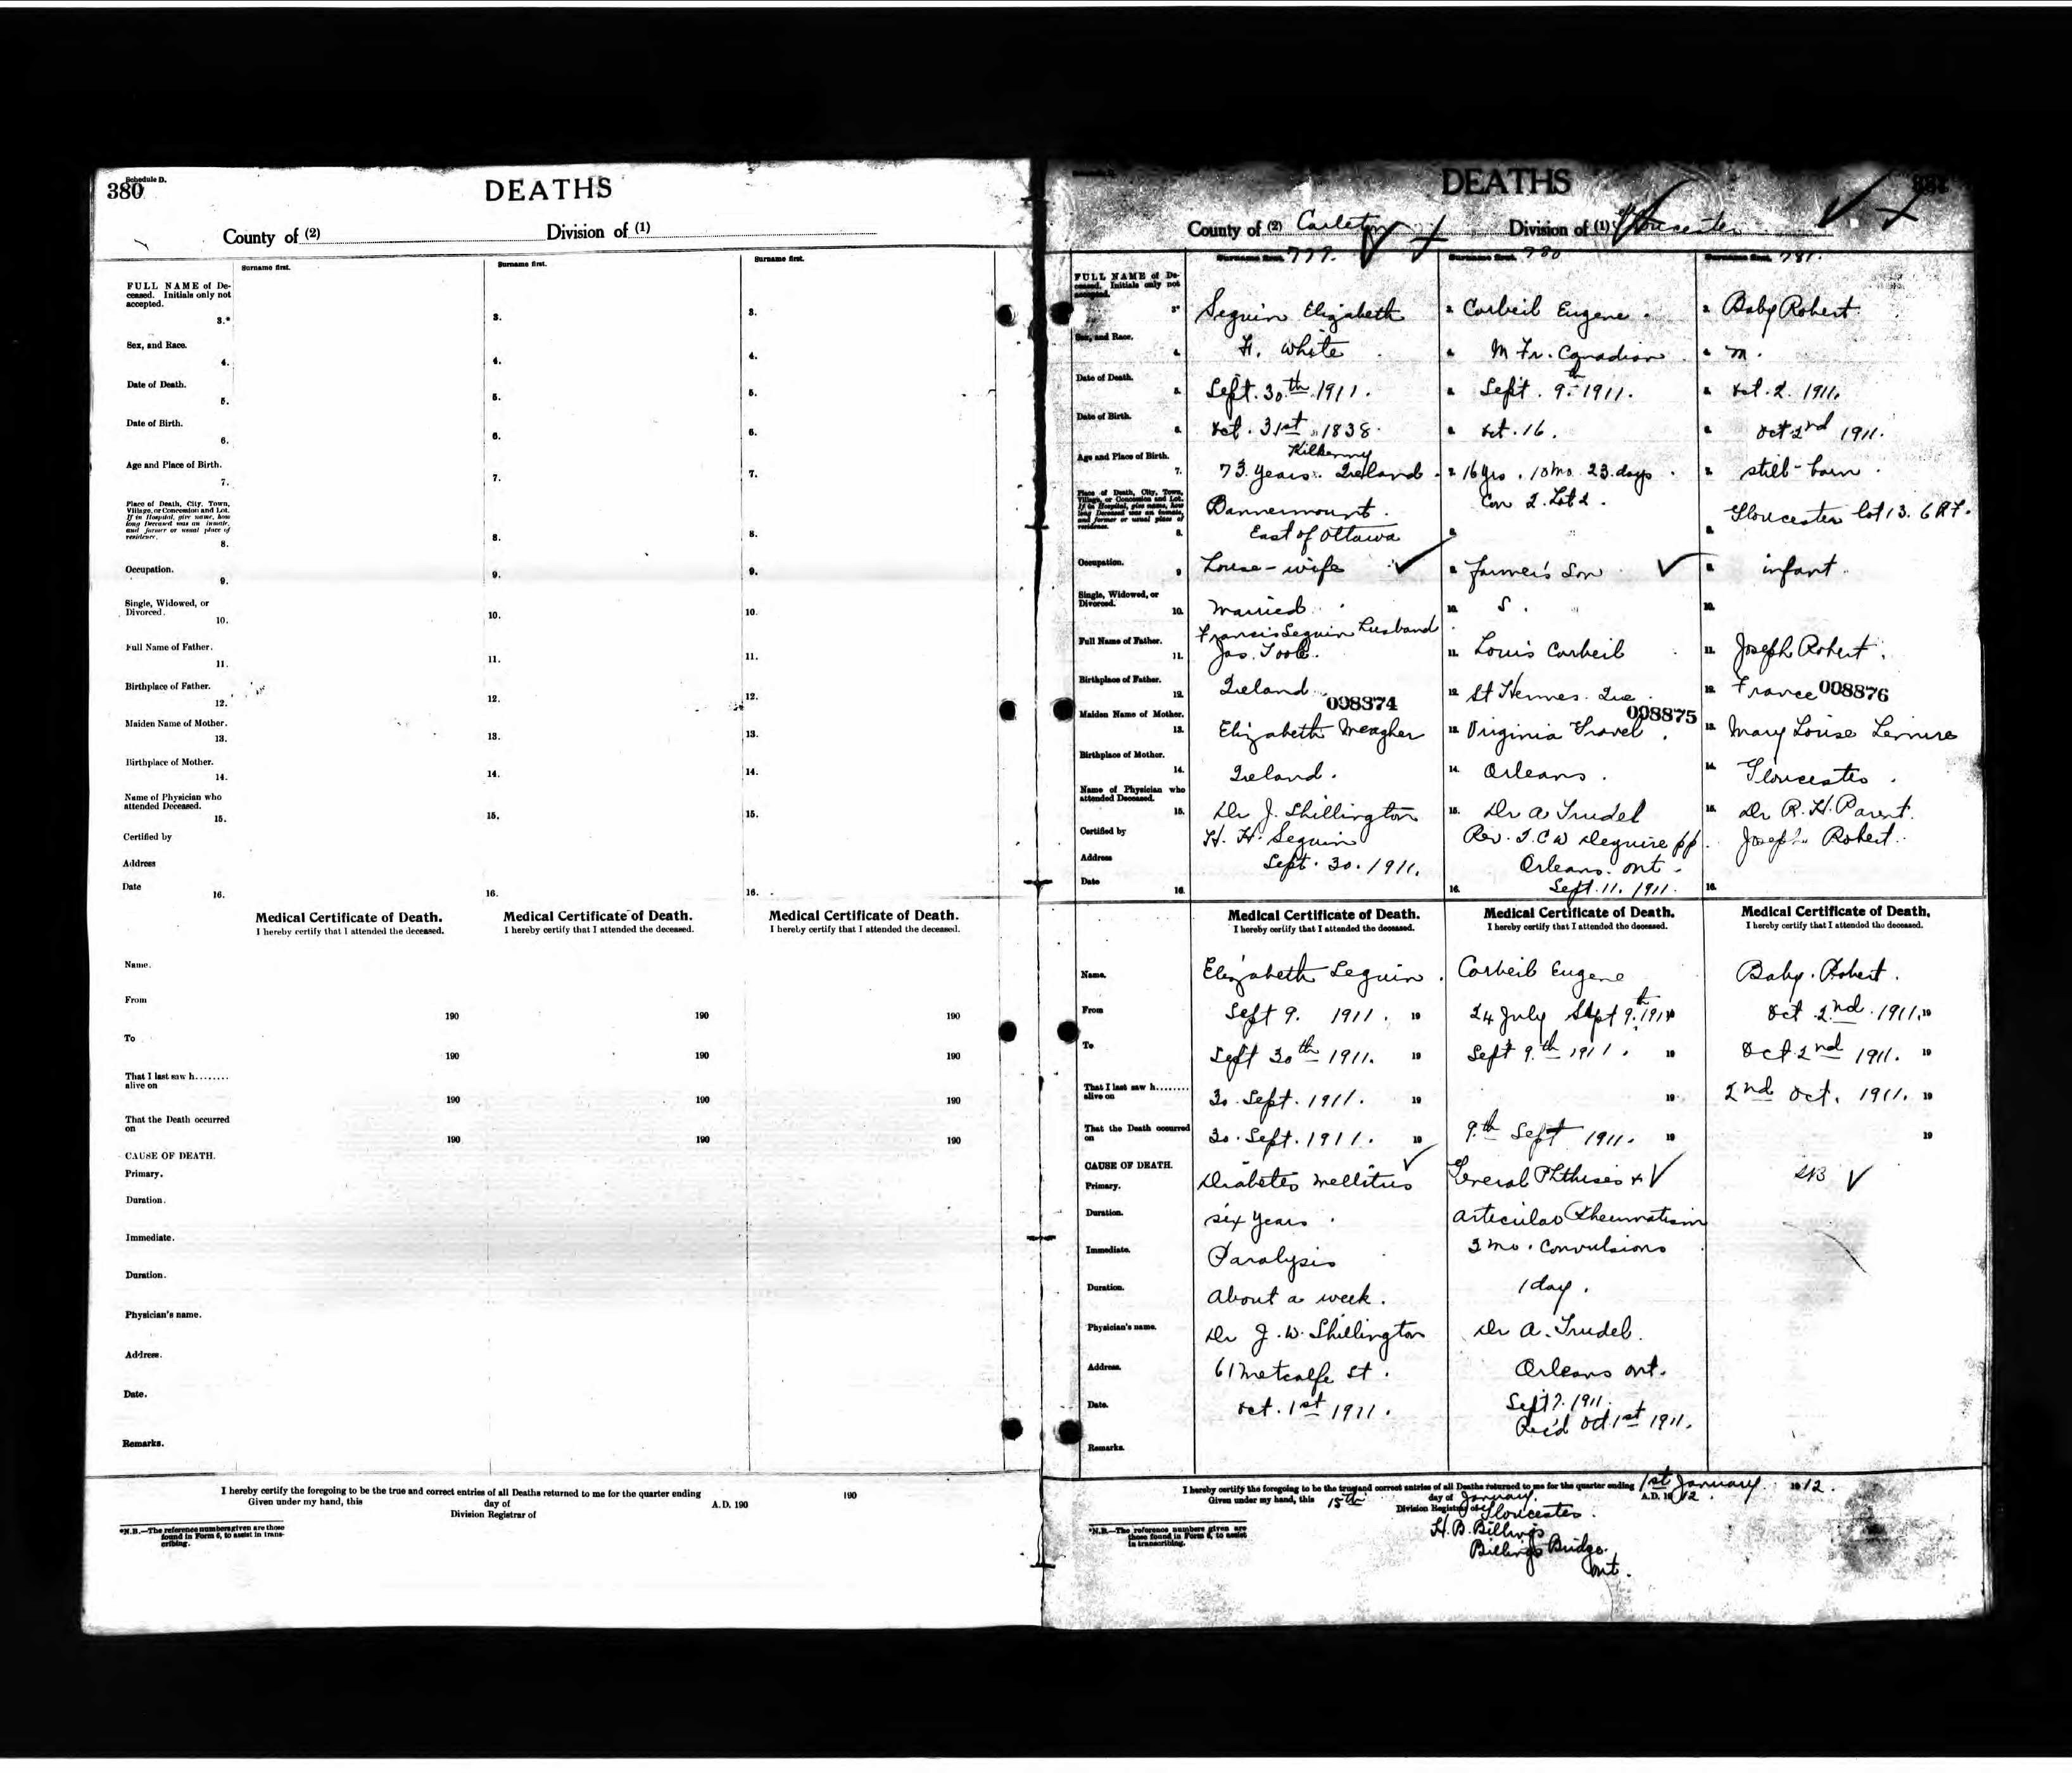 Schedule D.
380
DEATHS
County of (2)
Division of (1)
Surname first.
Surname first.
Surname first.
FULL NAME of De-
ceased. Initials only not
accepted.
3.*
3.
3.
Sex, and Race.
4.
4.
4.
Date of Death.
5.
5.
5.
Date of Birth.
6.
6.
6.
Age and Place of Birth.
7.
7.
7.
Place of Death, City, Town,
Village, or Concession and Lot.
If in Hospital, give name, how
long Deceased was an inmate,
and former or usual place of
residence.
8.
8.
8.
Occupation.
9.
9.
9.
Single, Widowed, or
Divorced.
10.
10.
10.
Full Name of Father.
11.
11.
11.
Birthplace of Father.
12.
12.
12.
Maiden Name of Mother.
13.
13.
13.
Birthplace of Mother.
14.
14.
14.
Name of Physician who
attended Deceased.
15.
15.
15.
Certified by
Address
Date
16.
16.
16.
Medical Certificate of Death.
I hereby certify that I attended the deceased.
Medical Certificate of Death.
I hereby certify that I attended the deceased.
Medical Certificate of Death.
I hereby certify that I attended the deceased.
Name.
From
190
190
190
To
190
190
190
That I last saw h........
alive on
190
190
190
That the Death occurred
on
190
190
190
CAUSE OF DEATH.
Primary.
Duration.
Immediate.
Duration.
Physician's name.
Address.
Date.
Remarks.
I hereby certify the foregoing to be the true and correct entries of all Deaths returned to me for the quarter ending 190
Given under my hand, this day of A.D. 190
Division Registrar of
*N.B.—The reference numbers given are those
found in Form 6, to assist in trans-
cribing.
DEATHS
County of (2) Carleton Division of (1) Gloucester
Surname first. 779. Surname first. 780 Surname first. 781.
FULL NAME of De-
ceased. Initials only not
accepted.
Seguin Elizabeth
Corbeil Eugene.
Baby Robert
Sex, and Race.
F. White
M Fr. Canadian
M.
Date of Death.
Sept. 30th 1911.
Sept. 9th 1911.
Oct. 2. 1911.
Date of Birth.
Oct. 31st 1838.
Oct. 16.
Oct 2nd 1911.
Age and Place of Birth.
7.
Kilkenny
73 years. Ireland
16 yrs. 10 mo. 23 days
still-born
Place of Death, City, Town,
Village, or Concession and Lot.
If in Hospital, give name, how
long Deceased was an inmate,
and former or usual place of
residence.
8.
Bannermount.
East of Ottawa
Con 2. Lot 2.
Gloucester lot 13. 6 R.F.
Occupation.
House-wife
Farmer's Son
infant
Single, Widowed, or
Divorced.
10.
Married
10. S.
10.
Full Name of Father.
11.
Francis Seguin Husband
Jas. Toole.
11. Louis Corbeil
11. Joseph Robert.
Birthplace of Father.
12.
Ireland
008874
12. St Hermes. Que
008875
12. France 008876
Maiden Name of Mother.
13.
Elizabeth Meagher
13. Virginia Gravel
13. Mary Louise Lemire
Birthplace of Mother.
14.
Ireland.
14. Orleans.
14. Gloucester.
Name of Physician who
attended Deceased.
15.
Dr J. Shillington
15. Dr A Trudel
15. Dr R. H. Parent.
Certified by
H. H. Seguin
Rev. J. C W Deguire pp.
Joseph Robert.
Address
Orleans. Ont.
Date
16.
Sept. 30. 1911.
16. Sept. 11. 1911.
16.
Medical Certificate of Death.
I hereby certify that I attended the deceased.
Medical Certificate of Death.
I hereby certify that I attended the deceased.
Medical Certificate of Death,
I hereby certify that I attended the deceased.
Name.
Elizabeth Seguin.
Corbeil Eugene
Baby. Robert.
From
Sept 9. 1911. 19
24 July Sept 9th 1911
Oct 2nd. 1911. 19
To
Sept 30th 1911. 19
Sept 9th 1911. 19
Oct 2nd 1911. 19
That I last saw h........
alive on
30. Sept. 1911. 19
19
2nd Oct. 1911. 19
That the Death occurred
on
30. Sept. 1911. 19
9th Sept 1911. 19
19
CAUSE OF DEATH.
Primary.
Diabetes Mellitus
General Phthises +
SB
Duration.
six years.
articular Rheumatism
Immediate.
Paralysis
2 mo. Convulsions
Duration.
About a week.
1 day.
Physician's name.
Dr J. W. Shillington
Dr A. Trudel.
Address.
61 Metcalfe St.
Orleans Ont.
Date.
Oct. 1st 1911.
Sept 9. 1911.
Rec'd Oct 1st 1911.
Remarks.
I hereby certify the foregoing to be the true and correct entries of all Deaths returned to me for the quarter ending 1st January 1912.
Given under my hand, this 15th day of January. A.D. 1912.
Division Registrar of Gloucester.
H. B. Billings
Billings Bridge.
Ont.
*N.B.—The reference numbers given are
those found in Form 6, to assist
in transcribing.